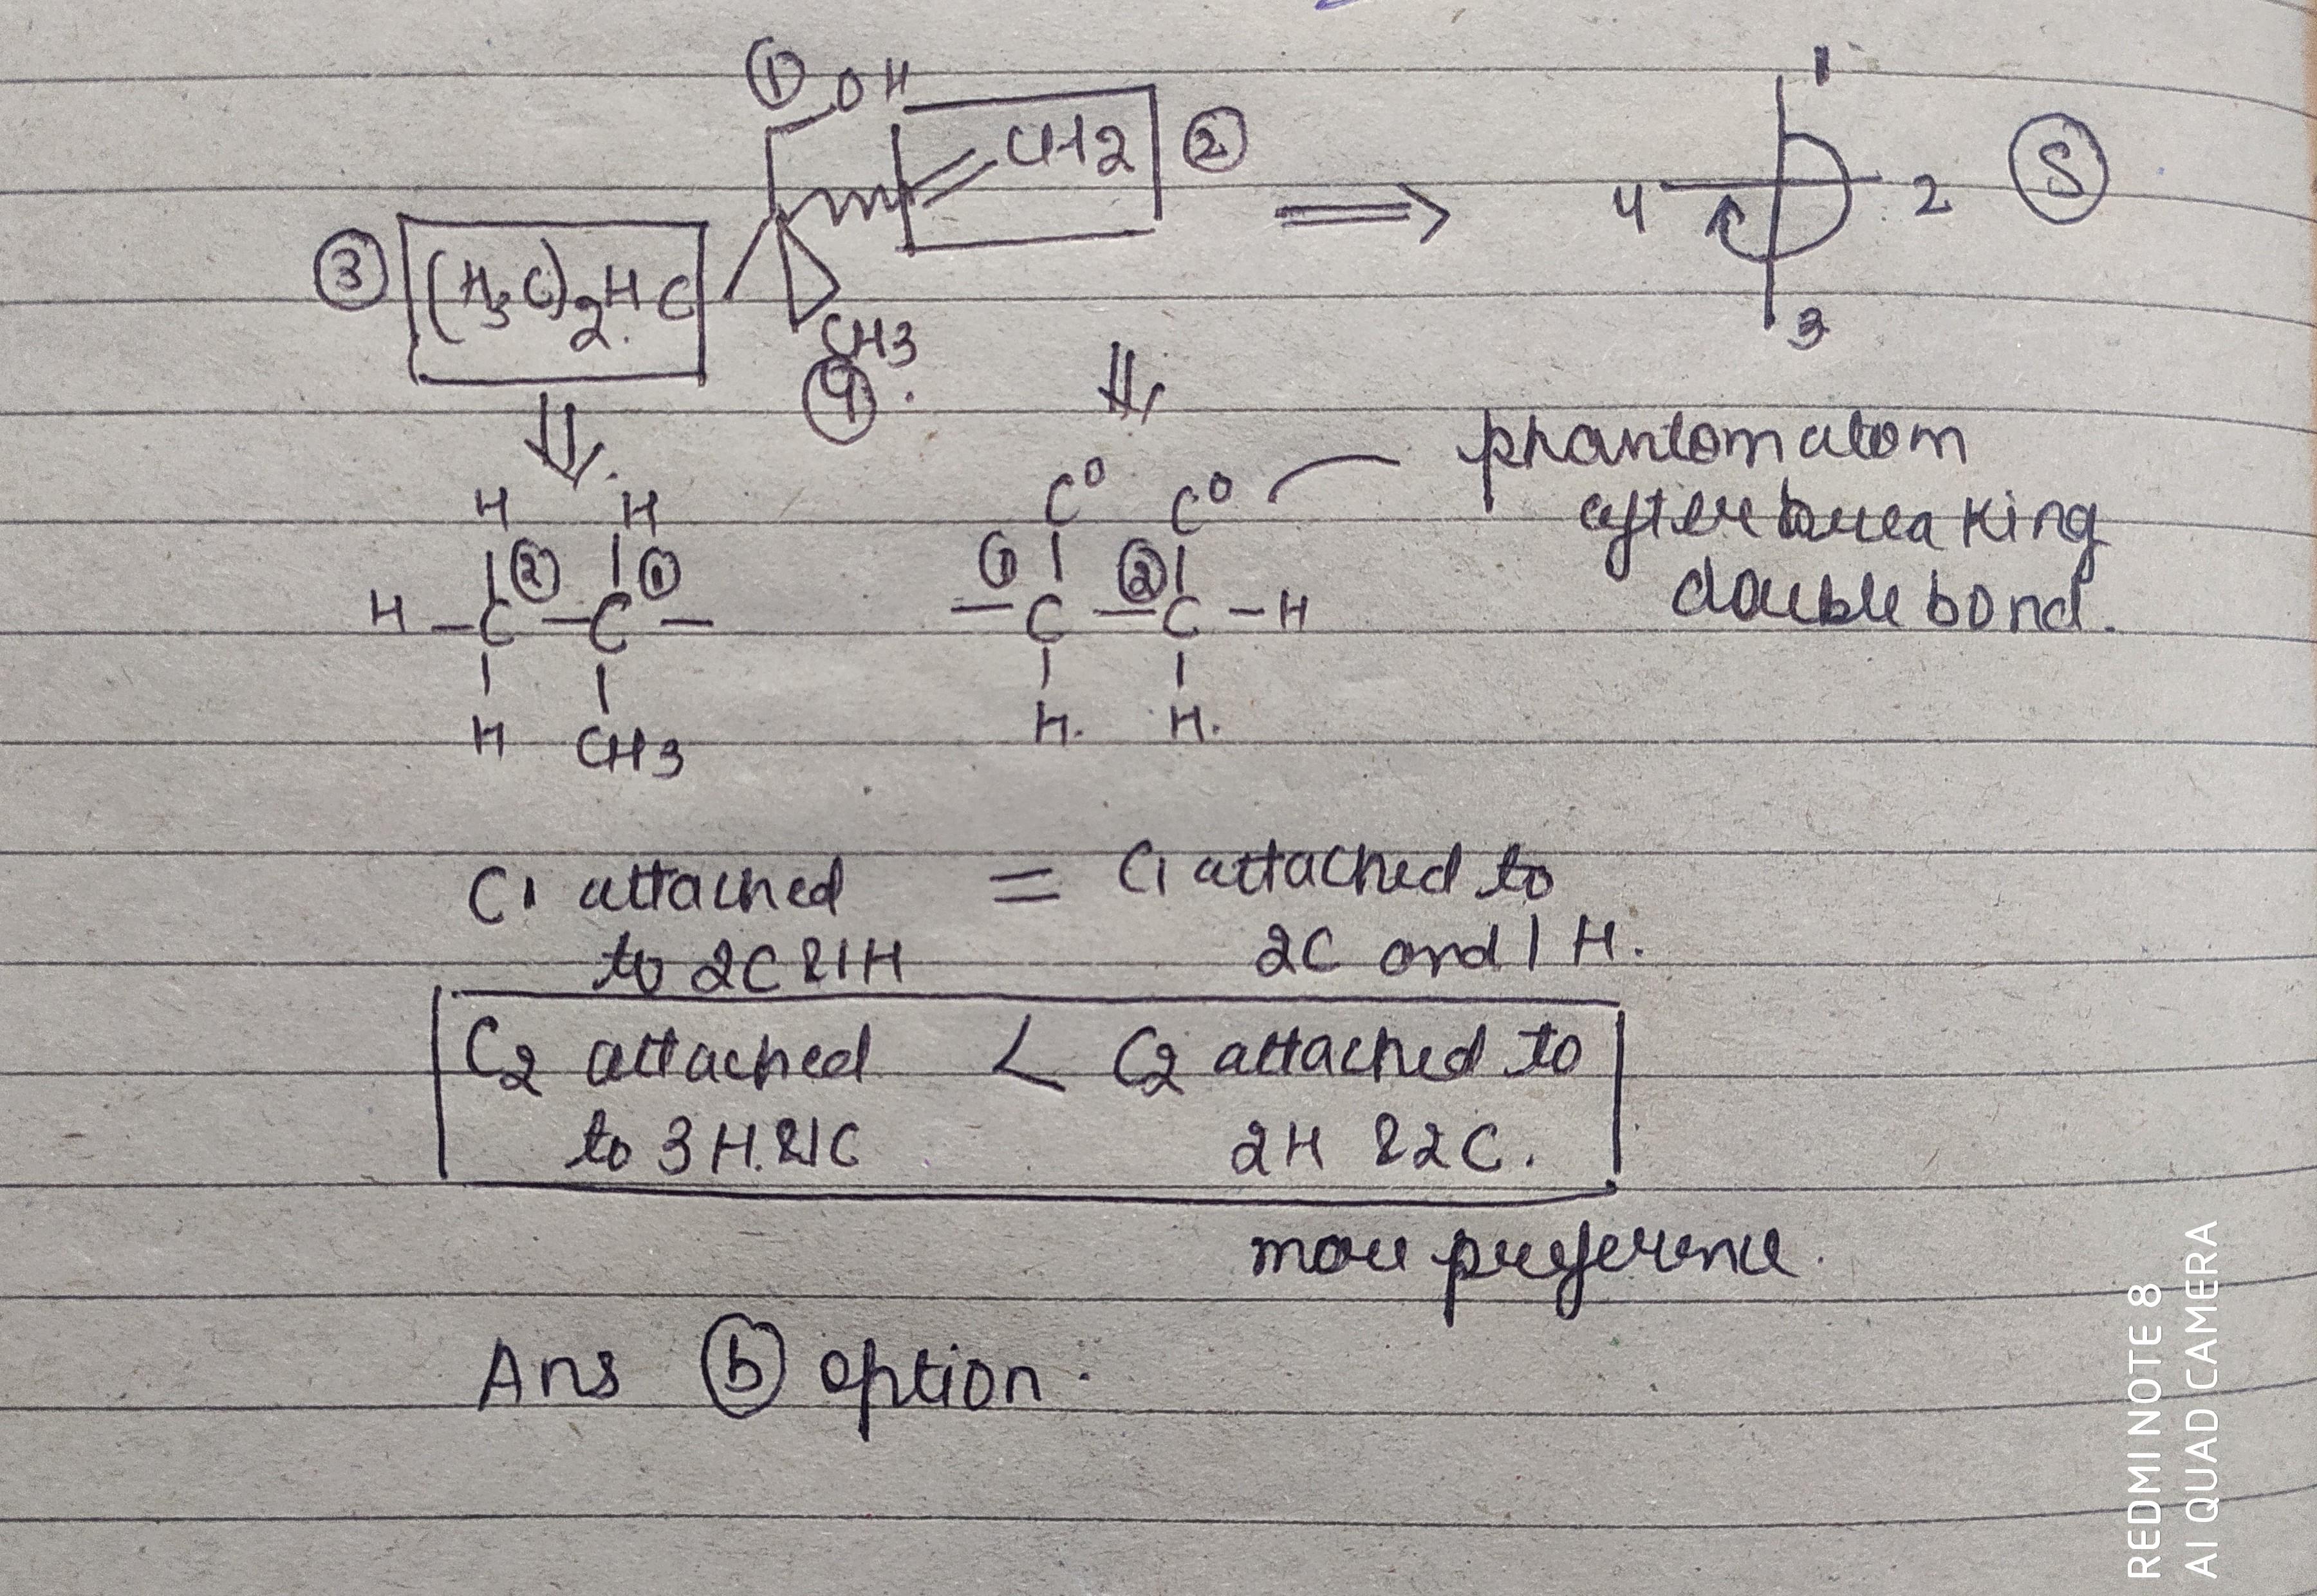 ① OH
=CH2 ②
③ (H3C)2HC
CH3
④
1
4 2 Ⓢ
3
phantom atom
after breaking
double bond.
H H
② ①
H - C - C -
H CH3
C° C°
① ②
- C - C - H
H. H.
C1 attached = C1 attached to
to 2C &1H 2C and 1 H.
C2 attached < C2 attached to
to 3H.&1C 2H &2C.
more preference.
Ans ⓑ option.
REDMI NOTE 8
AI QUAD CAMERA